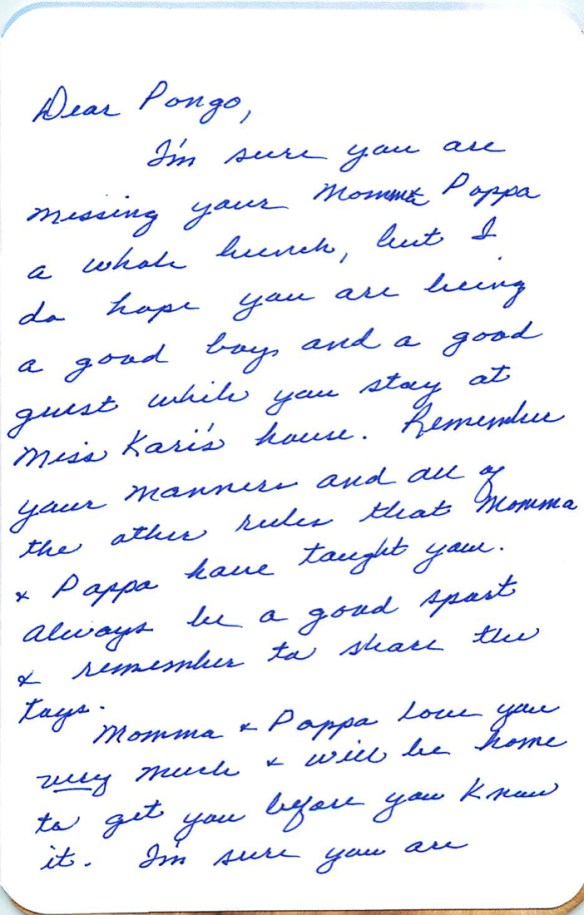 Dear Pongo,
I'm sure you are
missing your Momma & Pappa
a whole bunch, but I
do hope you are being
a good boy, and a good
guest while you stay at
Miss Kari's house. Remember
your manners and all of
the other rules that Momma
& Pappa have taught you.
Always be a good sport
& remember to share the
toys.
Momma & Pappa love you
very much & will be home
to get you before you know
it. I'm sure you are